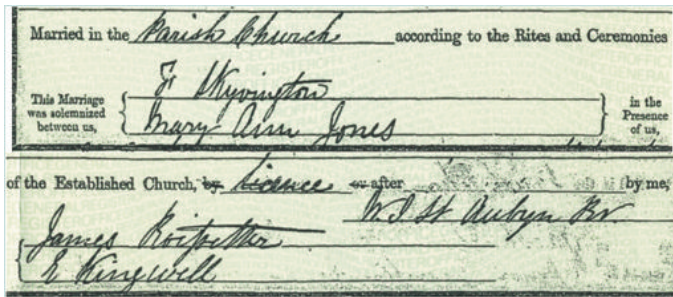 Married in the Parish Church according to the Rites and Ceremonies
This Marriage was solemnized between us,
Fr Skyvington
Mary Ann Jones
in the Presence of us,
of the Established Church, by Licence or after by me,
W. J. St Aubyn
James
E Kingwell